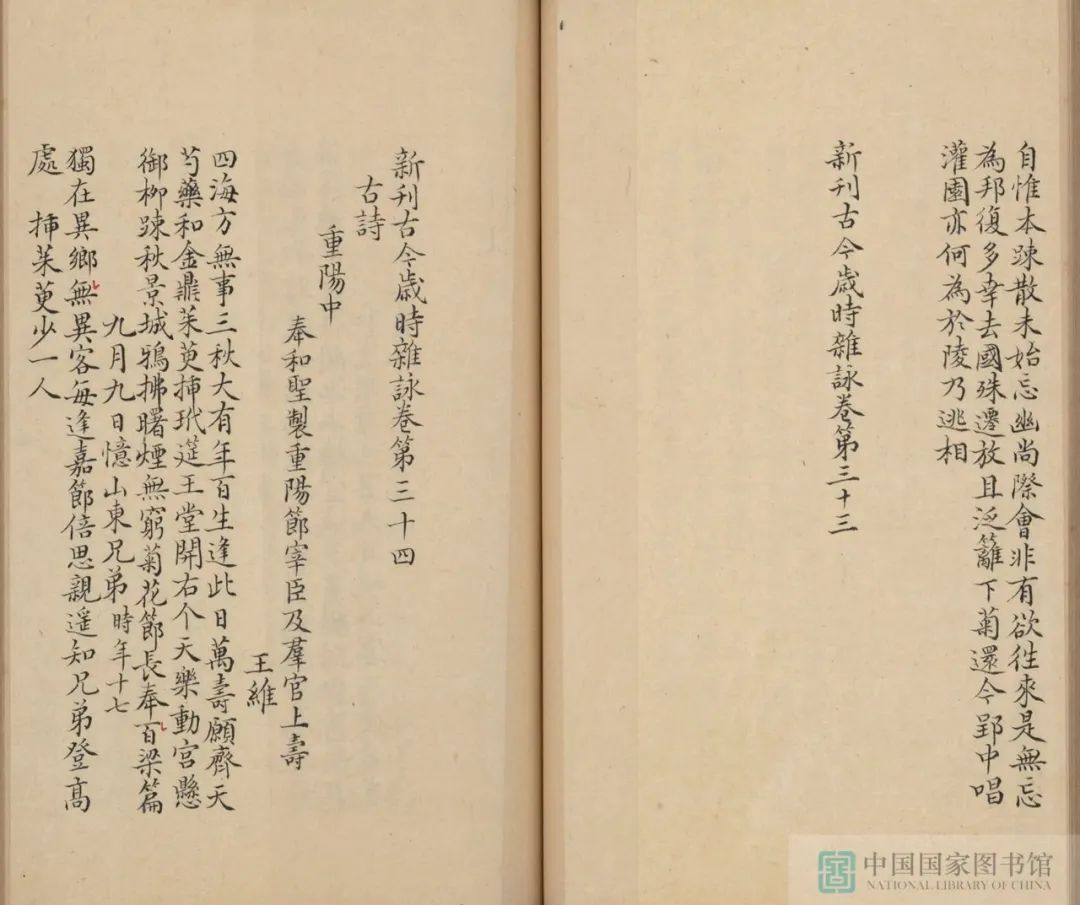 自惟本踈散未始忘幽尚際會非有欲徃來是無忘
為邦復多幸去國殊遷放且泛籬下菊還令郢中唱
灌園亦何為於陵乃逃相
新刊古今歲時雜詠卷第三十三
新刊古今歲時雜詠卷第三十四
古詩
重陽中
奉和聖製重陽節宰臣及羣官上壽
王維
四海方無事三秋大有年百生逢此日萬壽願齊天
芍藥和金鼎茱萸挿玳筵王堂開右个天樂動宮懸
御栁踈秋景城鴉拂曙煙無窮菊花節長奉百梁篇
九月九日憶山東兄弟時年十七
獨在異鄉無異客每逢嘉節倍思親遥知兄弟登高
處 挿茱萸少一人
中国国家图书馆
NATIONAL LIBRARY OF CHINA